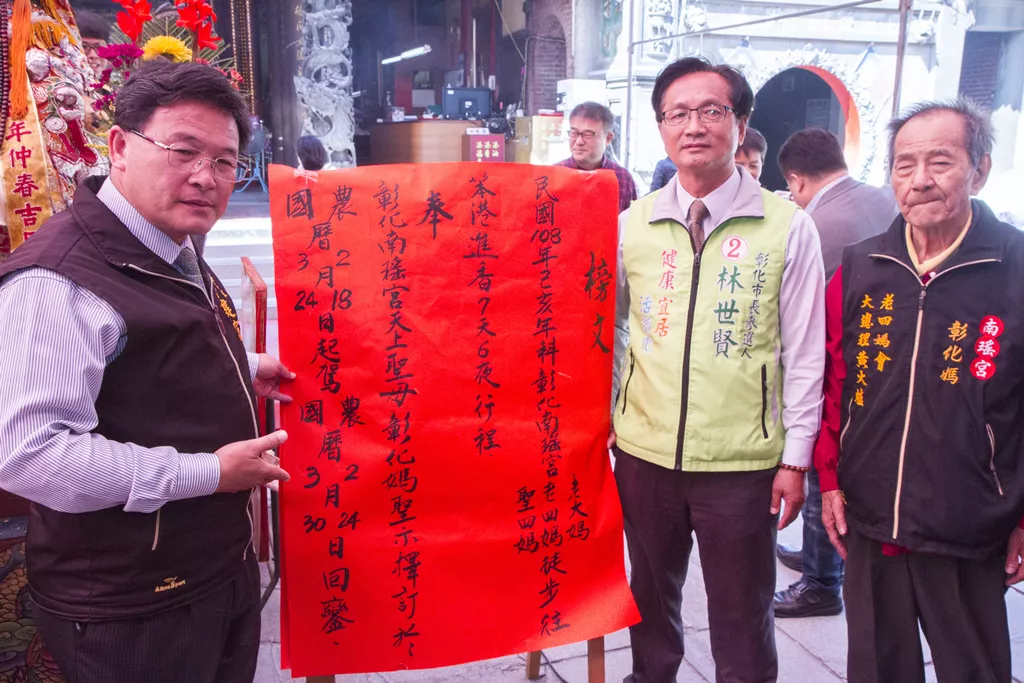 榜文
民國108年己亥年科彰化南瑤宮老四媽徒步往
老大媽
聖四媽
笨港進香7天6夜行程
奉
彰化南瑤宮天上聖母彰化媽聖示擇訂於
農曆2月18日起駕農曆2月24日回鑾
國 3 24 國 3 30
年仲春吉
彰化市長參選人
2
林世賢
健康宜居
南瑤宮
彰化媽
老四媽會
大總理黃火